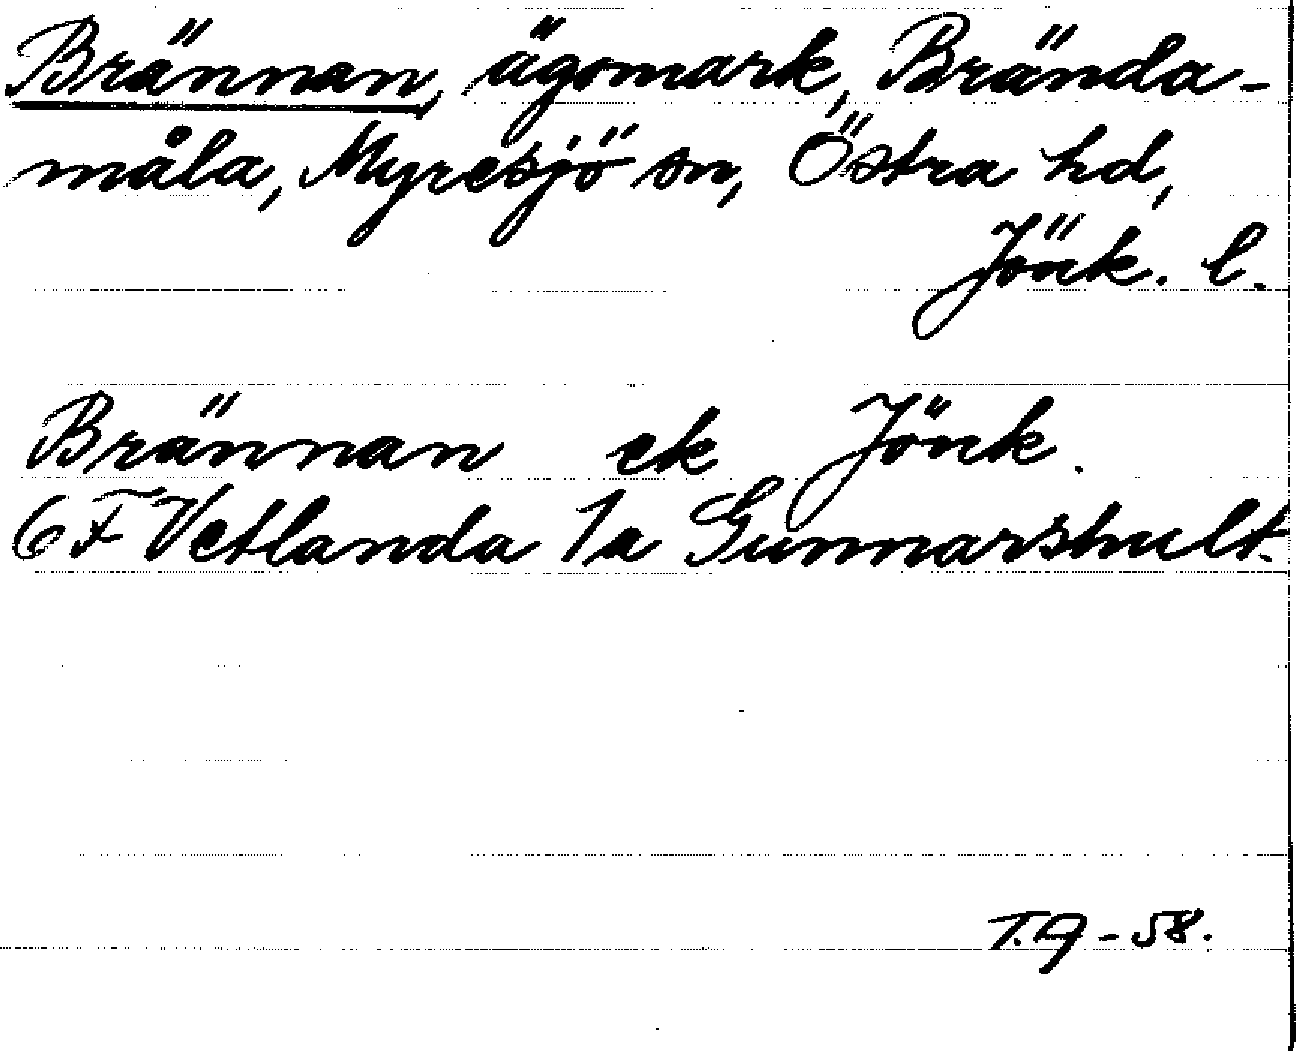 Brännan, ägomark, Brända-
måla, Myresjö sn, Östra hd,
Jönk. l.
Brännan ek Jönk.
6 F Vetlanda 1a Gunnarshult.
T.A-58.